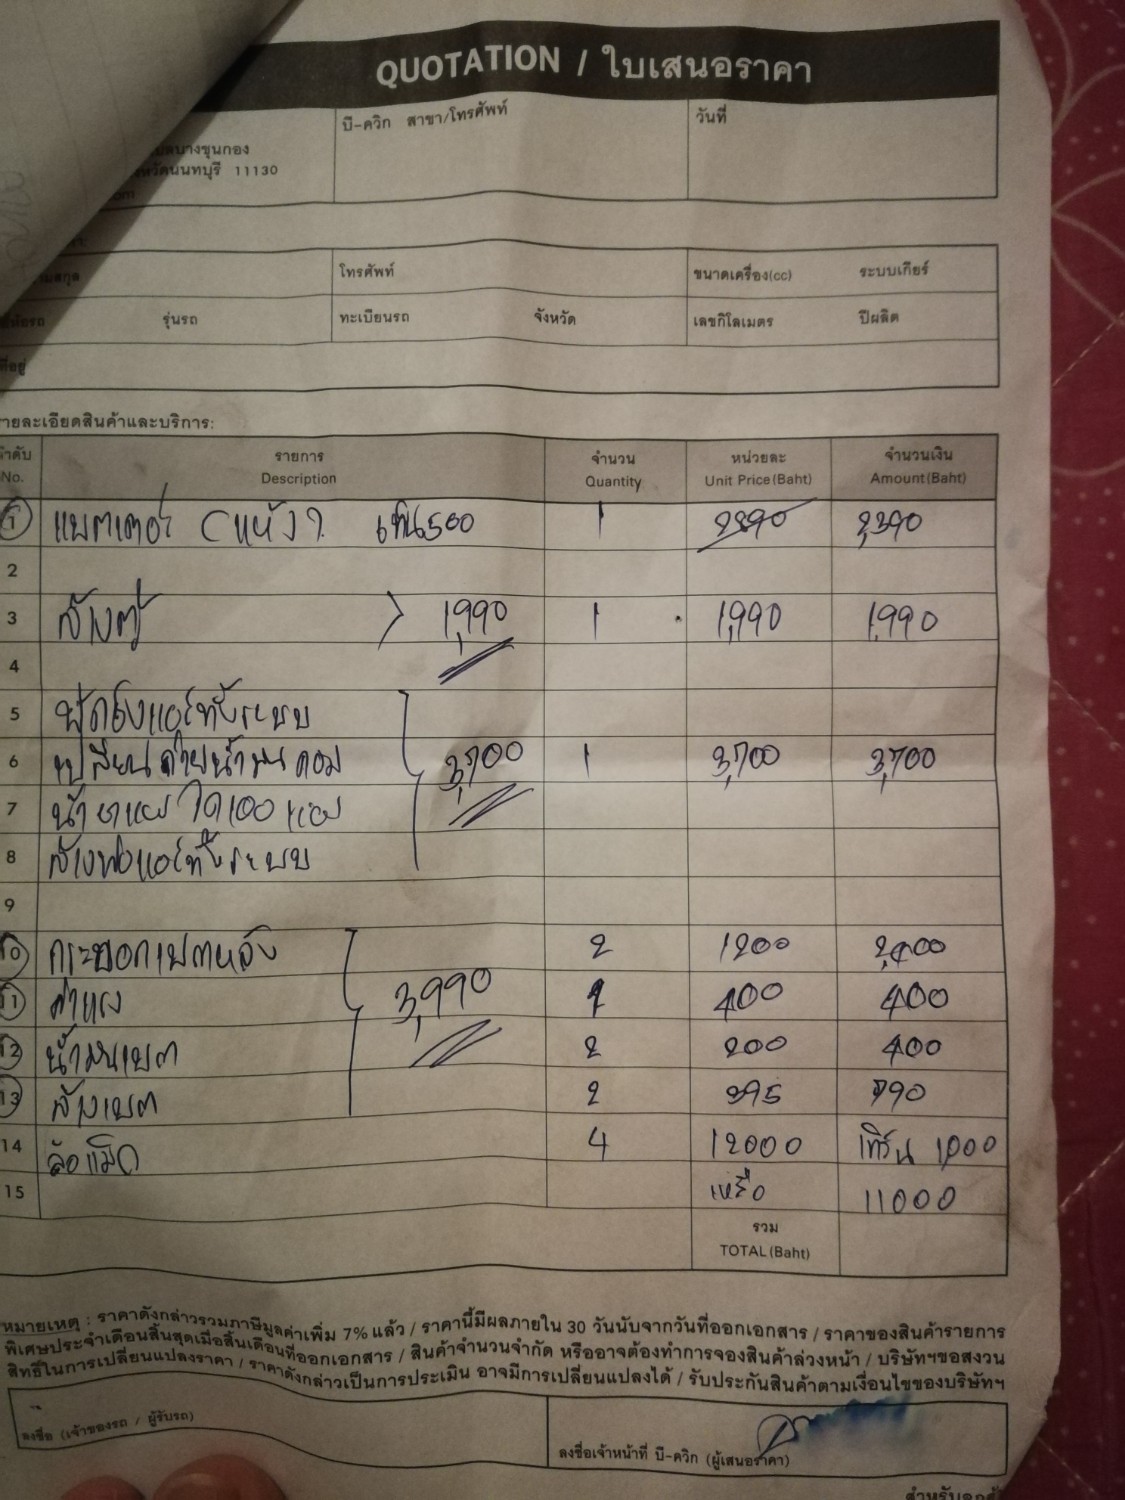 QUOTATION / ใบเสนอราคา
บี-ควิก สาขา/โทรศัพท์ วันที่
บางขุนกอง
นนทบุรี 11130
โทรศัพท์ ขนาดเครื่อง(cc) ระบบเกียร์
รุ่นรถ ทะเบียนรถ จังหวัด เลขกิโลเมตร ปีผลิต
ที่อยู่
รายละเอียดสินค้าและบริการ:
ลำดับ รายการ จำนวน หน่วยละ จำนวนเงิน
No. Description Quantity Unit Price(Baht) Amount(Baht)
1 แบตเตอรี่ (แห้ง) เทิน500 1 2890 2,390
2
3 ล้างตู้ 1,990 1 1,990 1,990
4
5
6 เปลี่ยนถ่ายน้ำมันคอม 3,700 1 3,700 3,700
7
8 ล้างท่อแอร์ทั้งระบบ
9
10 กระบอกเบรคหลัง 2 1200 2,400
11 ค่าแรง 3,990 1 400 400
12 น้ำมันเบรค 2 200 400
13 ล้างเบรค 2 395 790
14 ล้อแม็ก 4 12000 เทิร์น 1,000
15 เหลือ 11000
รวม
TOTAL(Baht)
หมายเหตุ : ราคาดังกล่าวรวมภาษีมูลค่าเพิ่ม 7% แล้ว / ราคานี้มีผลภายใน 30 วันนับจากวันที่ออกเอกสาร / ราคาของสินค้ารายการ
พิเศษประจำเดือนสิ้นสุดเมื่อสิ้นเดือนที่ออกเอกสาร / สินค้าจำนวนจำกัด หรืออาจต้องทำการจองสินค้าล่วงหน้า / บริษัทฯขอสงวน
สิทธิ์ในการเปลี่ยนแปลงราคา / ราคาดังกล่าวเป็นการประเมิน อาจมีการเปลี่ยนแปลงได้ / รับประกันสินค้าตามเงื่อนไขของบริษัทฯ
ลงชื่อ (เจ้าของรถ / ผู้รับรถ) ลงชื่อเจ้าหน้าที่ บี-ควิก (ผู้เสนอราคา)